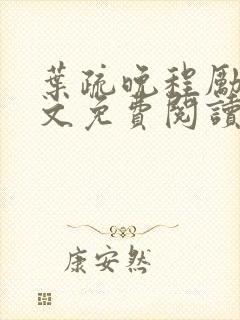 葉疏晚程勵
文免費閱讀
康安然